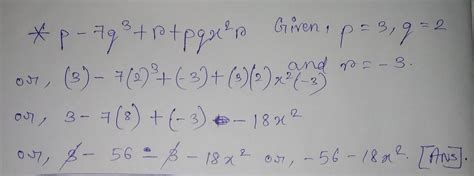 * p - 7q³ + r + pqx²r Given, p = 3, q = 2
and r = -3.
or, (3) - 7(2)³ + (-3) + (3)(2) x² (-3)
or, 3 - 7(8) + (-3) - 18x²
or, 3 - 56 - 3 - 18x² or, -56 - 18x². [Ans].